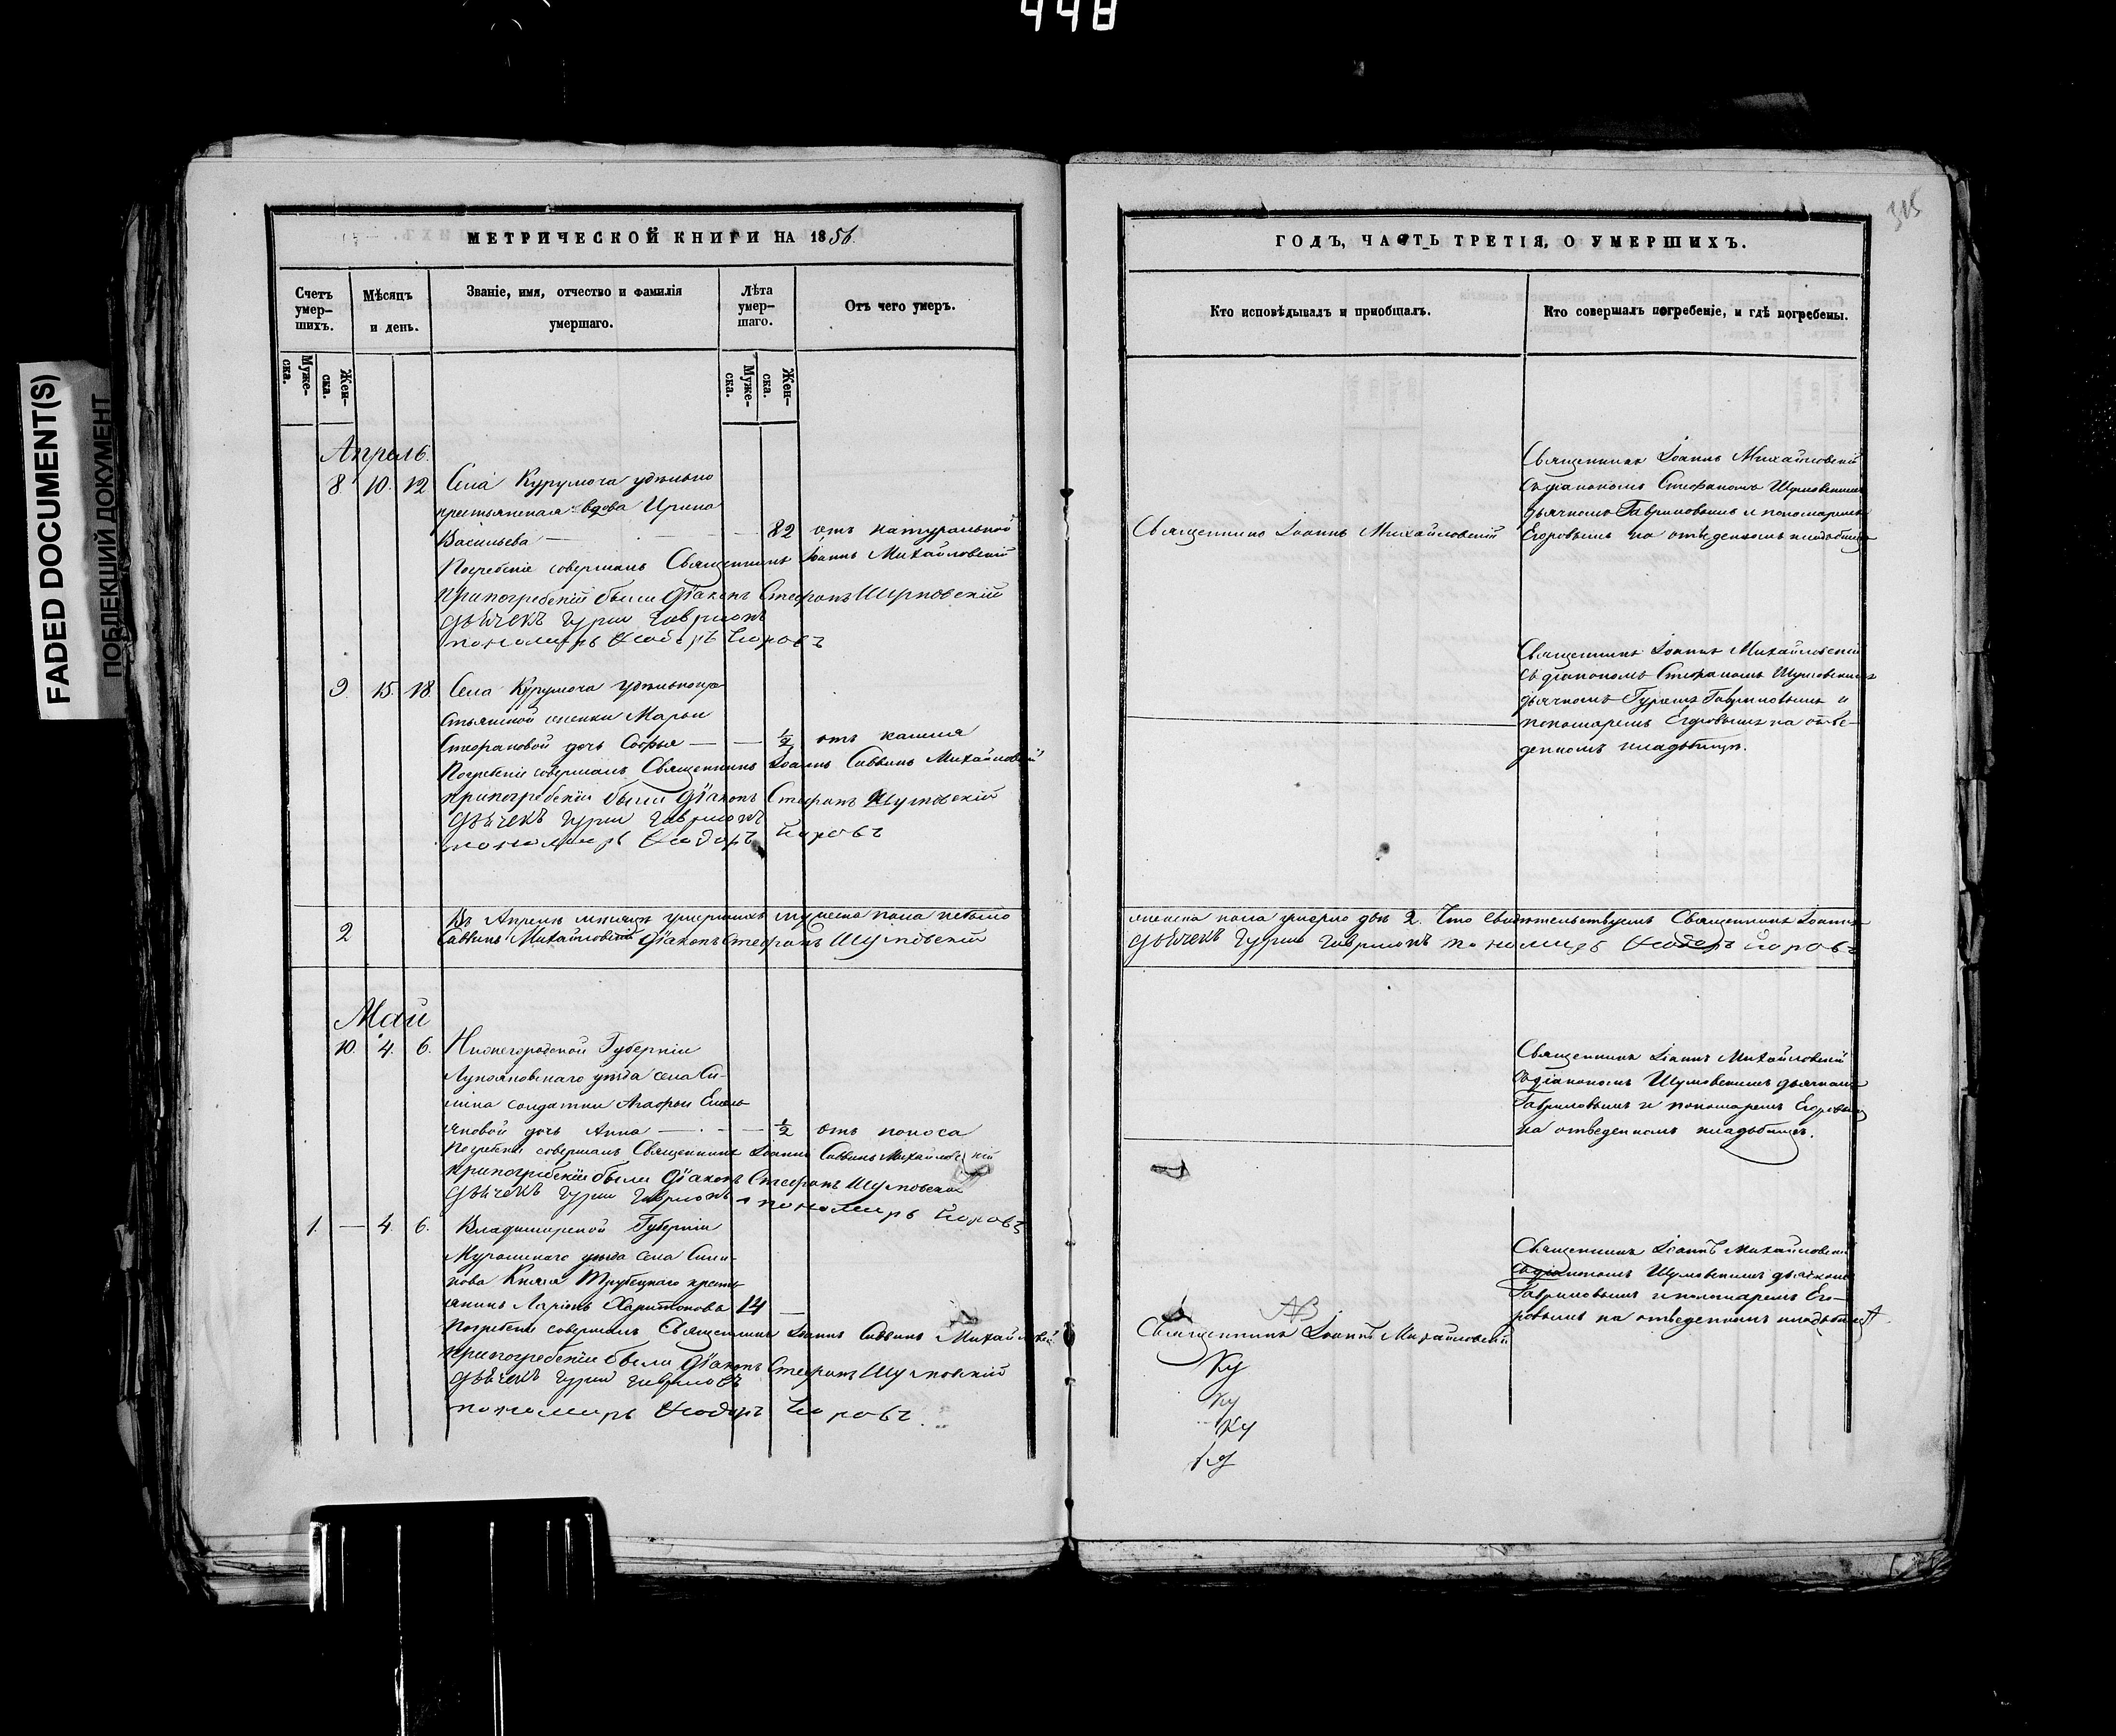 448
FADED DOCUMENT(S)
ПОБЛЕКШИЙ ДОКУМЕНТ
315
МЕТРИЧЕСКОЙ КНИГИ НА 1856
Счетъ умер-шихъ.
Мѣсяцъ и день.
Званіе, имя, отчество и фамилія умершаго.
Лѣта умер-шаго.
Отъ чего умеръ.
Муже-ска.
Жен-ска.
Муже-ска.
Жен-ска.
Апрель.
8 10. 12 Села Курумоча удѣльно
крестьянская вдова Ирина
Васильева — 82 отъ натуральной
Погребеніе совершалъ Священникъ Іоаннъ Михайловскій
припогребеніи были Діаконъ Стефанъ Шумовскій
Дьячекъ Гурій Гавриловъ
пономарь Егоровъ
9. 15. 18. Села Курумоча удѣльнокре
стьянской женки Марьи
Стефановой дочь Софья — — ½ отъ кашля
Погребеніе совершалъ Священникъ Іоаннъ Саввинъ Михайловскій
припогребеніи были Діаконъ Стефанъ Шумовскій
Дьячекъ Гурій Гавриловъ
пономарь Егоровъ
Въ Апрелѣ мѣсяцѣ умершихъ мужеска пола небыло
2 Саввинъ Михайловскій Діаконъ Стефанъ Шумовскій
Май
10. 4. 6. Нижегородской Губерніи
Лукояновскаго уѣзда села
солдатки Агафьи Емель
яновой дочь Анна — — ½ отъ поноса
Погребеніе совершалъ Священникъ Іоаннъ Саввинъ Михайловскій
припогребеніи были Діаконъ Стефанъ Шумовскій
Дьячекъ Гурій Гавриловъ пономарь Егоровъ
1. — 4. 6. Владимирской Губерніи
Муромскаго уѣзда села
Князя Трубецкаго кресть
янинъ Ларіонъ Харитоновъ 14 —
Погребеніе совершалъ Священникъ Іоаннъ Саввинъ Михайловскій
припогребеніи были Діаконъ Стефанъ Шумовскій
Дьячекъ Гурій Гавриловъ
пономарь Егоровъ
ГОДЪ, ЧАСТЬ ТРЕТІЯ, О УМЕРШИХЪ.
Кто исповѣдывалъ и пріобщалъ.
Кто совершалъ погребеніе, и гдѣ погребены.
Священникъ Іоаннъ Михайловскій
Священникъ Іоаннъ Михайловскій
съ діакономъ Стефаномъ Шумовскимъ
дьячкомъ Гавриловымъ и пономаремъ
Егоровымъ на отведенномъ кладбищѣ
Священникъ Іоаннъ Михайловскій
съ діакономъ Стефаномъ Шумовскимъ
дьячкомъ Гуріемъ Гавриловымъ и
пономаремъ Егоровымъ на отве-
денномъ кладбищѣ.
женска пола умерло двѣ 2. Что свидѣтельствуемъ Священникъ Іоаннъ
Дьячекъ Гурій Гавриловъ пономарь Егоровъ
Священникъ Іоаннъ Михайловскій
съ діакономъ Шумовскимъ дьячкомъ
Гавриловымъ и пономаремъ Егоровымъ
на отведенномъ кладбищѣ.
Священникъ Іоаннъ Михайловскій
съ діакономъ Шумовскимъ дьячкомъ
Гавриловымъ и пономаремъ Его-
ровымъ на отведенномъ кладбищѣ
Священникъ Іоаннъ Михайловскій
Ку
Ку
Ку